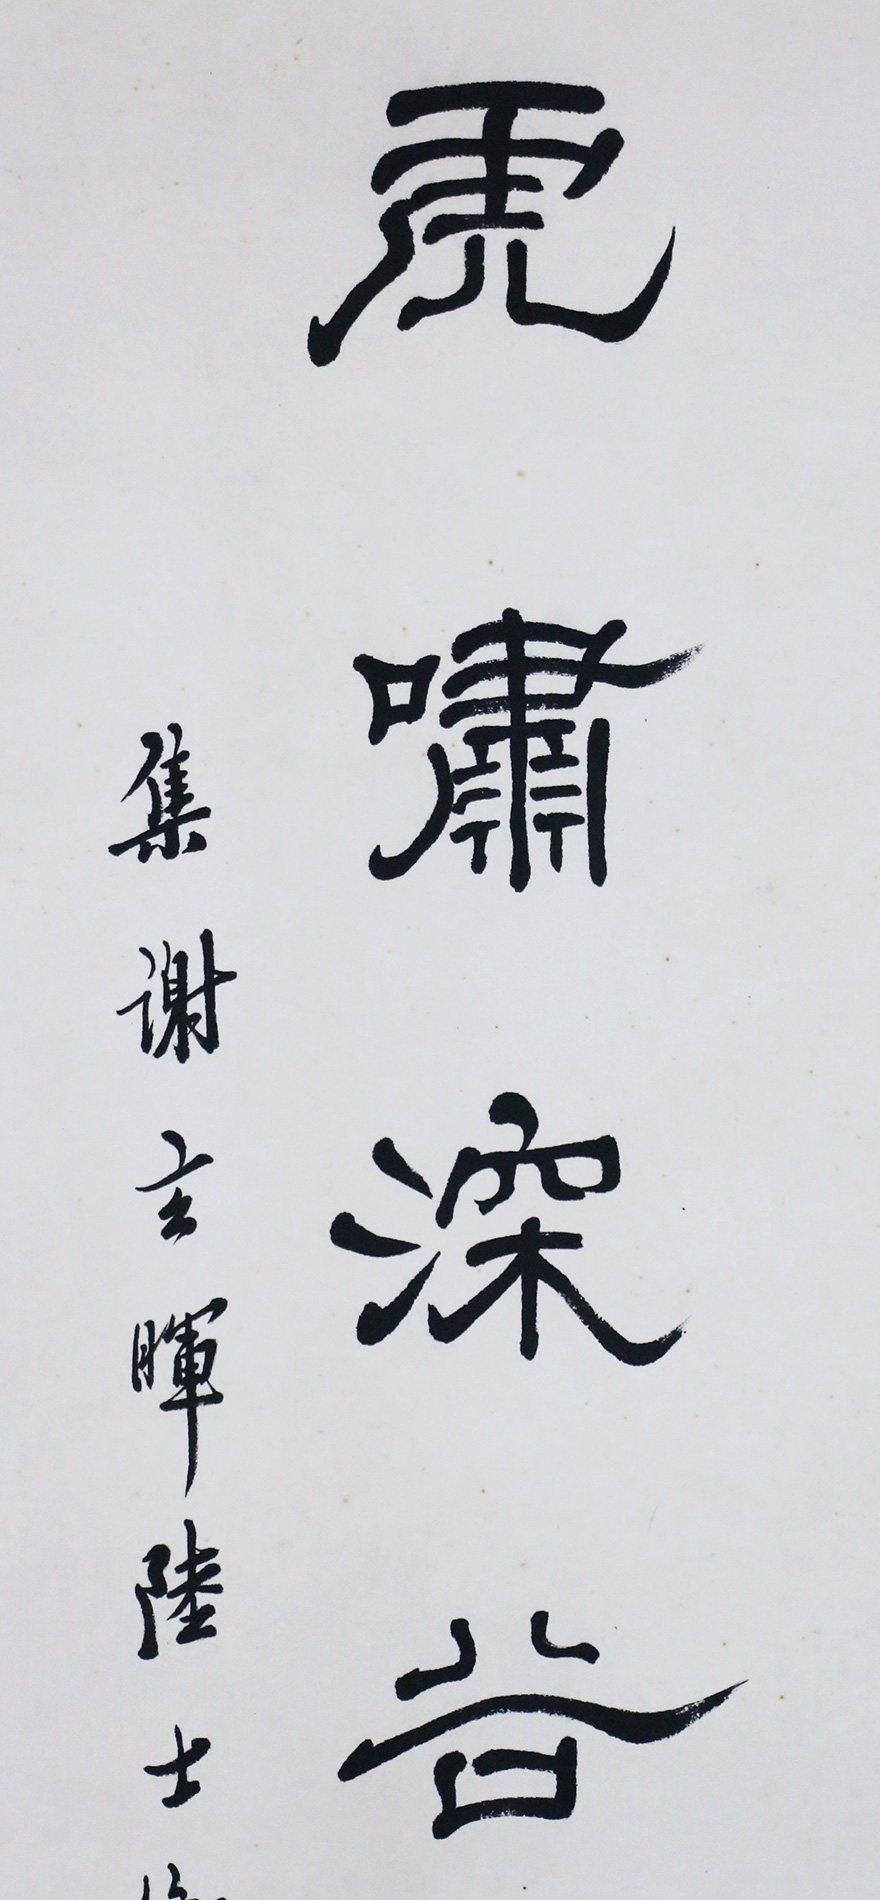 虎嘯深谷
集谢玄暉陸士